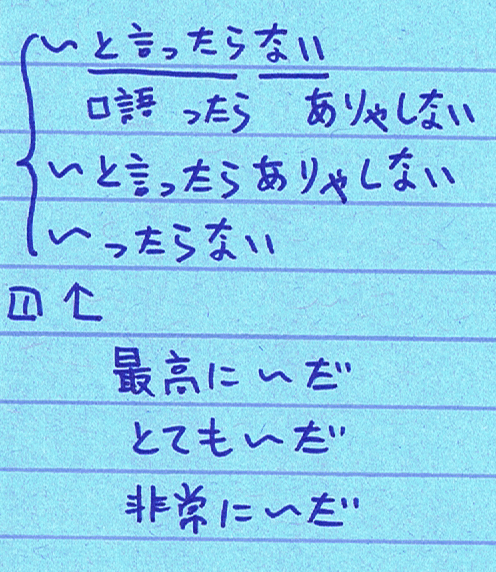 ～と言ったらない
口語 ったら ありゃしない
～と言ったらありゃしない
～ったらない
↑
最高に～だ
とても～だ
非常に～だ